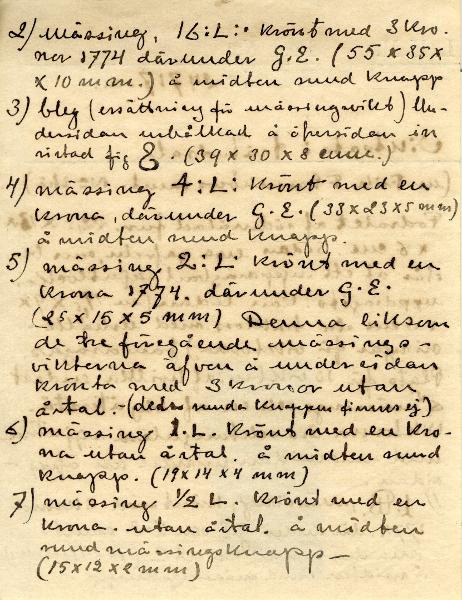 2) mässing, 16:L: krönt med 3 kro-
nor 1774 därunder G.E. (55 x 35 x
x 10 mm.) å midten rund knapp
3) bly (ersättning för mässingsvikt) Un-
dersidan urhålkad å öfversidan in
ristad fig (39 x 30 x 8 mm.)
4) mässing 4:L: krönt med en
krona, därunder G.E. (33 x 23 x 5 mm)
å midten rund knapp.
5) mässing 2:L: krönt med en
krona 1774. därunder G.E.
(25 x 15 x 5 mm) Denna liksom
de tre föregående mässings-
vikterna äfven å undersidan
krönta med 3 kronor utan
årtal. - (runda knappen finnes ej)
6) mässing 1.L. krönt med en kro-
na utan årtal. å midten rund
knapp. (19 x 14 x 4 mm)
7) mässing 1/2 L. krönt med en
krona. utan årtal. å midten
rund mässingsknapp —
(15 x 12 x 2 mm)